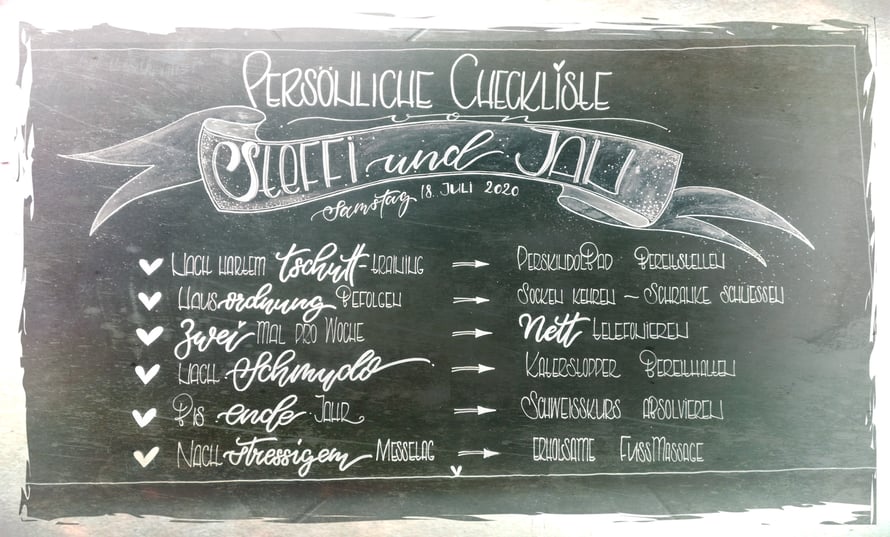 Persönliche Checkliste
von
Steffi und Jan
Samstag 18. Juli 2020
Nach hartem tschutt-training → Perskindolbad bereitstellen
Hausordnung befolgen → Socken kehren – Schränke schliessen
Zwei mal pro Woche → Nett telefonieren
Nach Schmudo → Katerstopper bereithalten
Bis ende Jahr → Schweisskurs absolvieren
Nach stressigem Messetag → erholsame Fussmassage